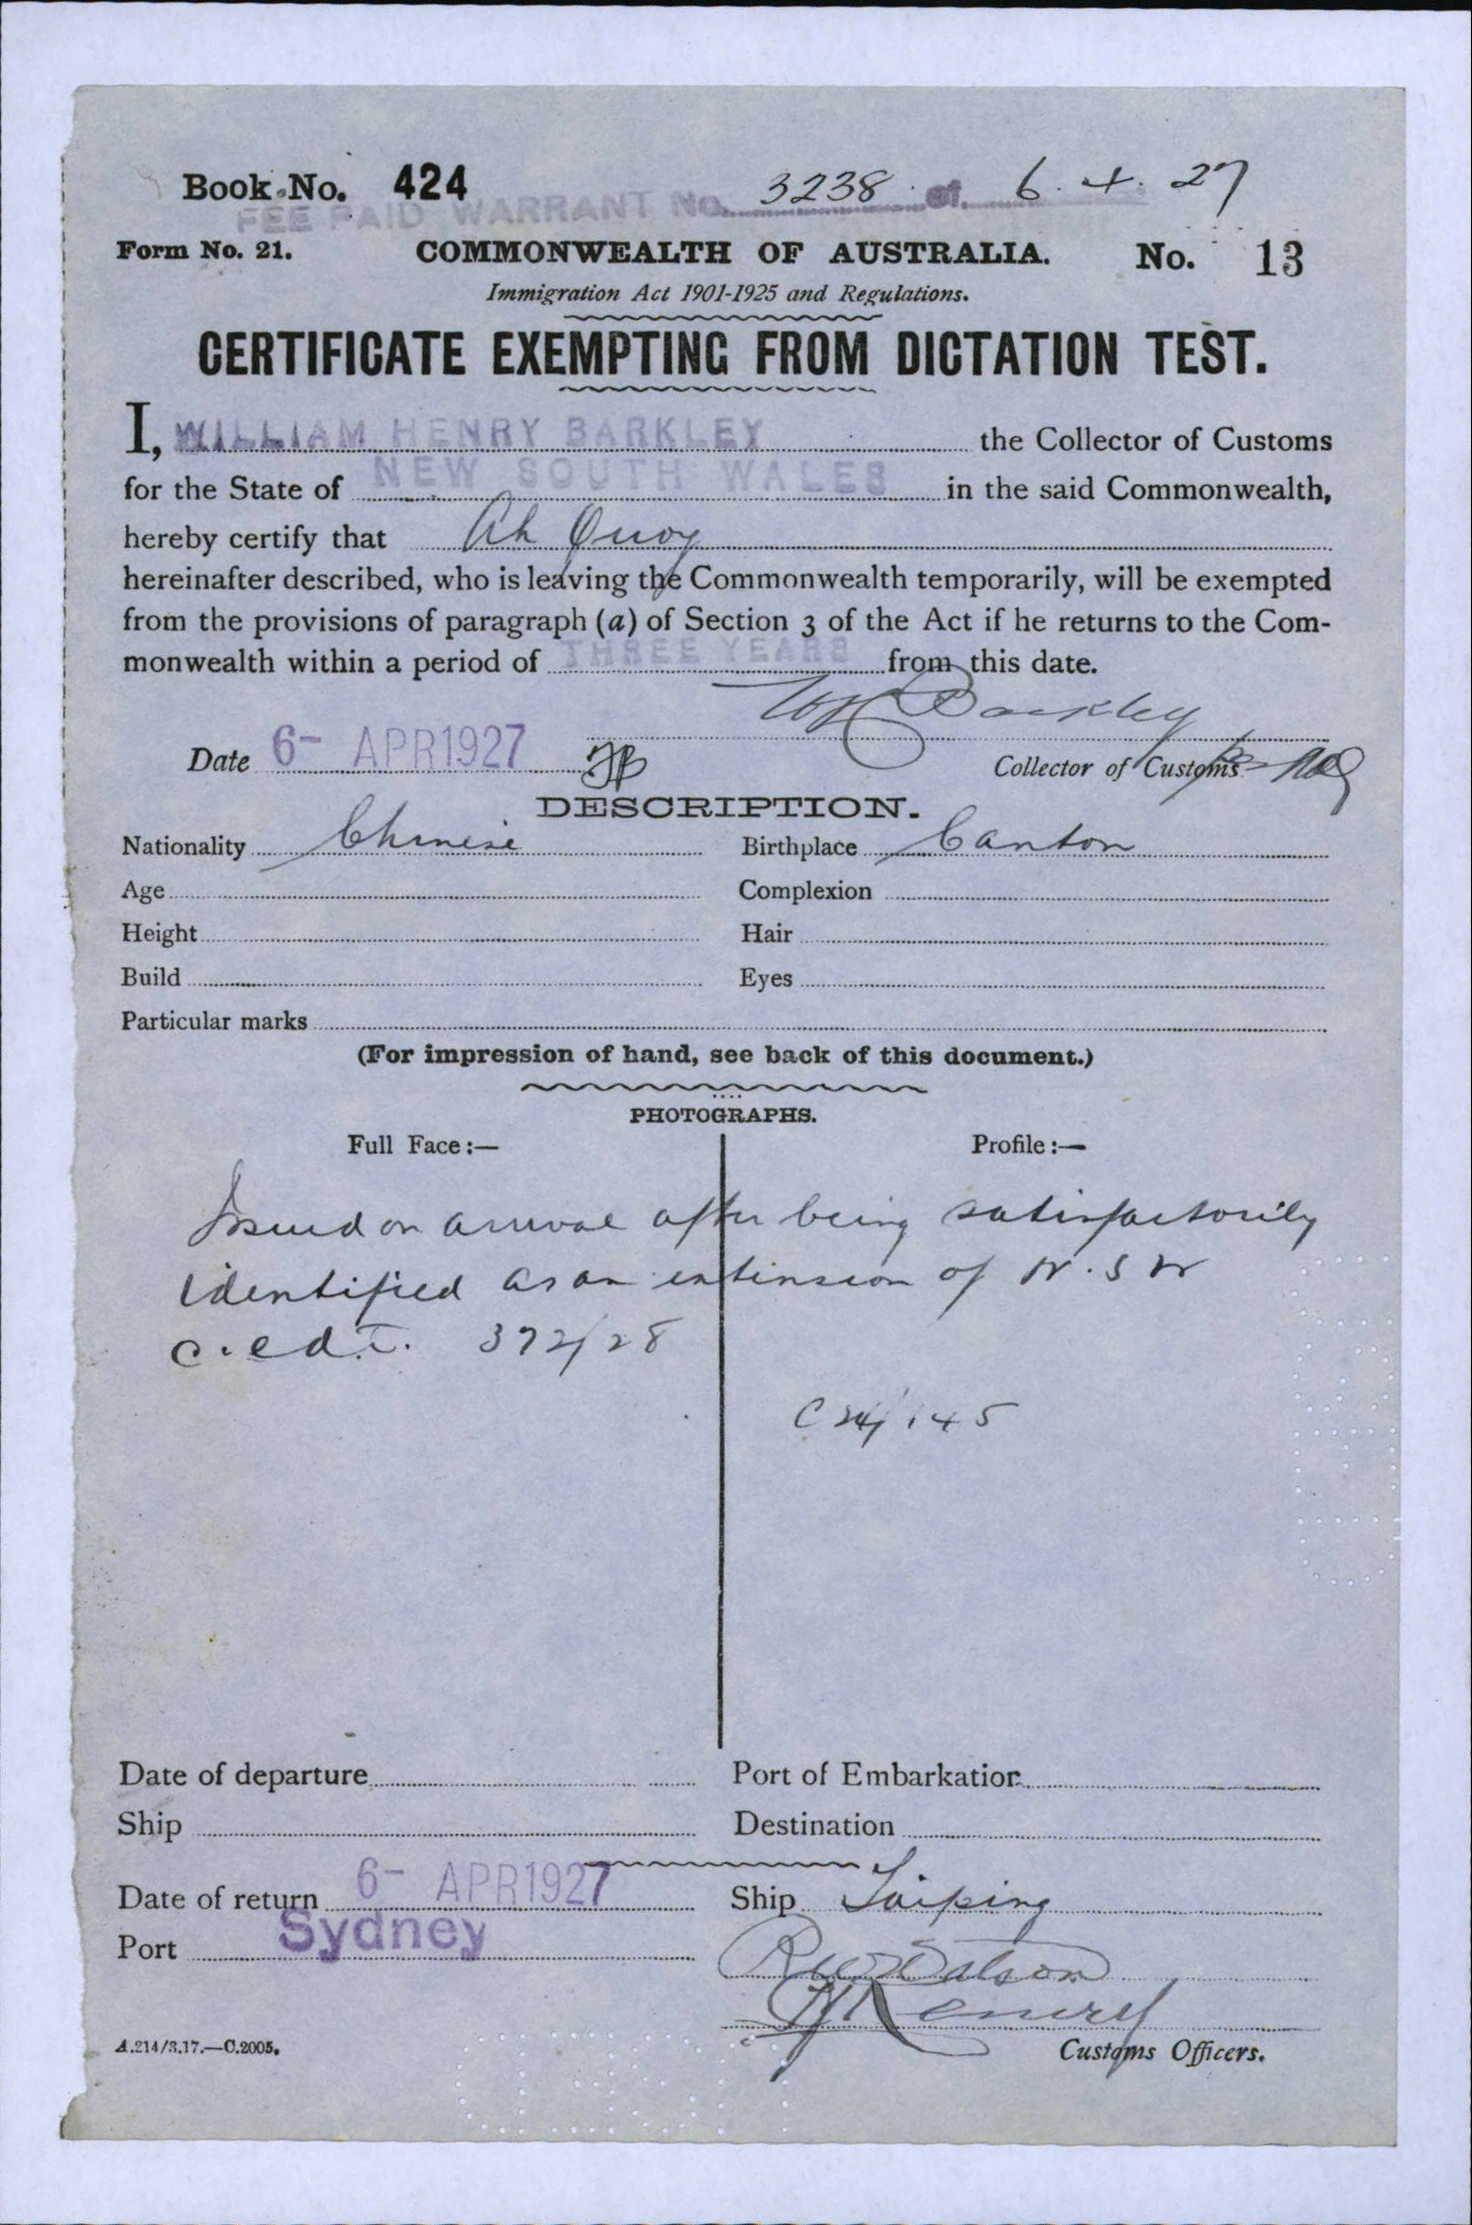 Book No. 424
FEE PAID WARRANT No. 3238 of 6.4.27
Form No. 21. COMMONWEALTH OF AUSTRALIA. No. 13
Immigration Act 1901-1925 and Regulations.
CERTIFICATE EXEMPTING FROM DICTATION TEST.
I, WILLIAM HENRY BARKLEY the Collector of Customs
for the State of NEW SOUTH WALES in the said Commonwealth,
hereby certify that Ah Quoy
hereinafter described, who is leaving the Commonwealth temporarily, will be exempted
from the provisions of paragraph (a) of Section 3 of the Act if he returns to the Com-
monwealth within a period of THREE YEARS from this date.
WH Barkley
Date 6- APR 1927 Collector of Customs
DESCRIPTION.
Nationality Chinese Birthplace Canton
Age Complexion
Height Hair
Build Eyes
Particular marks
(For impression of hand, see back of this document.)
PHOTOGRAPHS.
Full Face:— Profile:—
Issued on arrival after being satisfactorily
identified as an extension of N.S.W
C.E.D.T. 372/28
C24/145
Date of departure Port of Embarkation
Ship Destination
Date of return 6- APR 1927 Ship Taiping
Port Sydney
Watson
Customs Officers.
A.214/3.17.—C.2005.